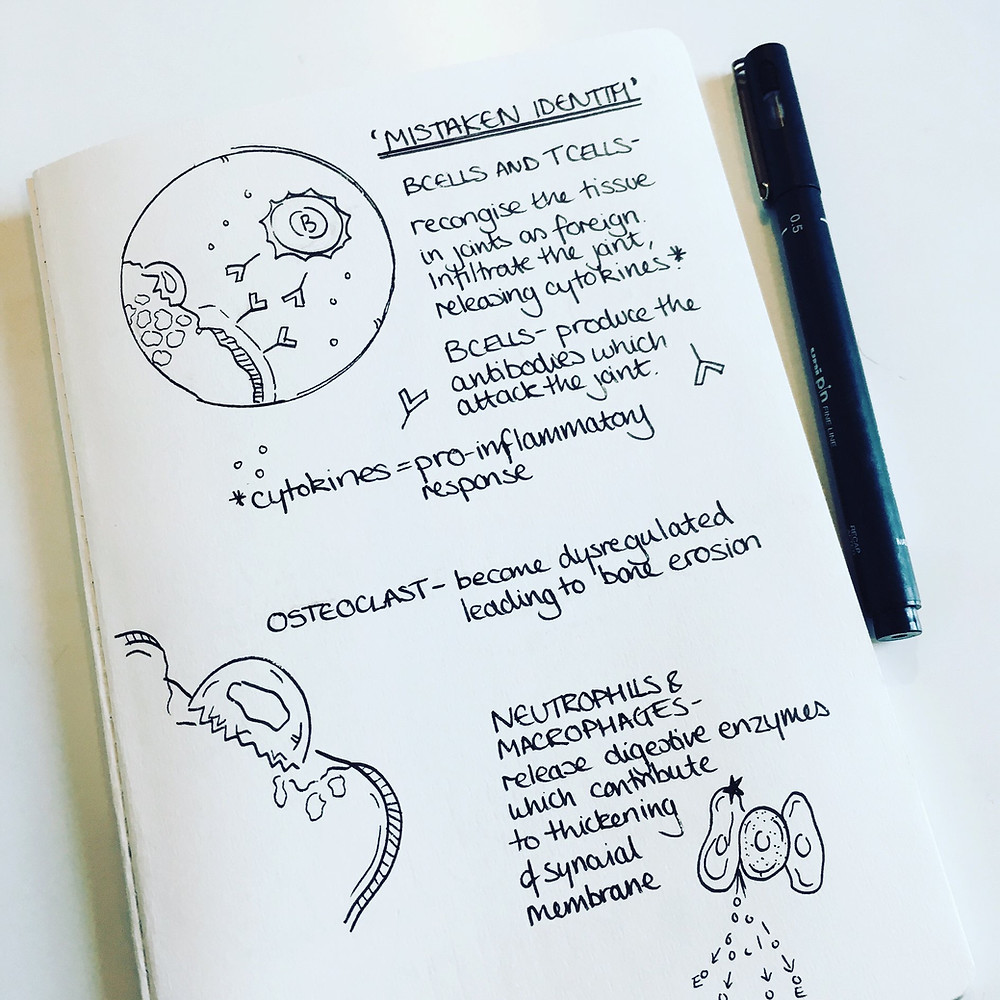 'MISTAKEN IDENTITY'
BCELLS AND TCELLS-
recongise the tissue
in joints as foreign.
Infiltrate the joint,
releasing cytokines*
B
BCELLS- produce the
antibodies which
attack the joint.
*cytokines = pro-inflammatory
response
OSTEOCLAST- become dysregulated
leading to bone erosion
NEUTROPHILS &
MACROPHAGES-
release digestive enzymes
which contribute
to thickening
of synovial
membrane
E
E
0.5
uni pin FINE LINE